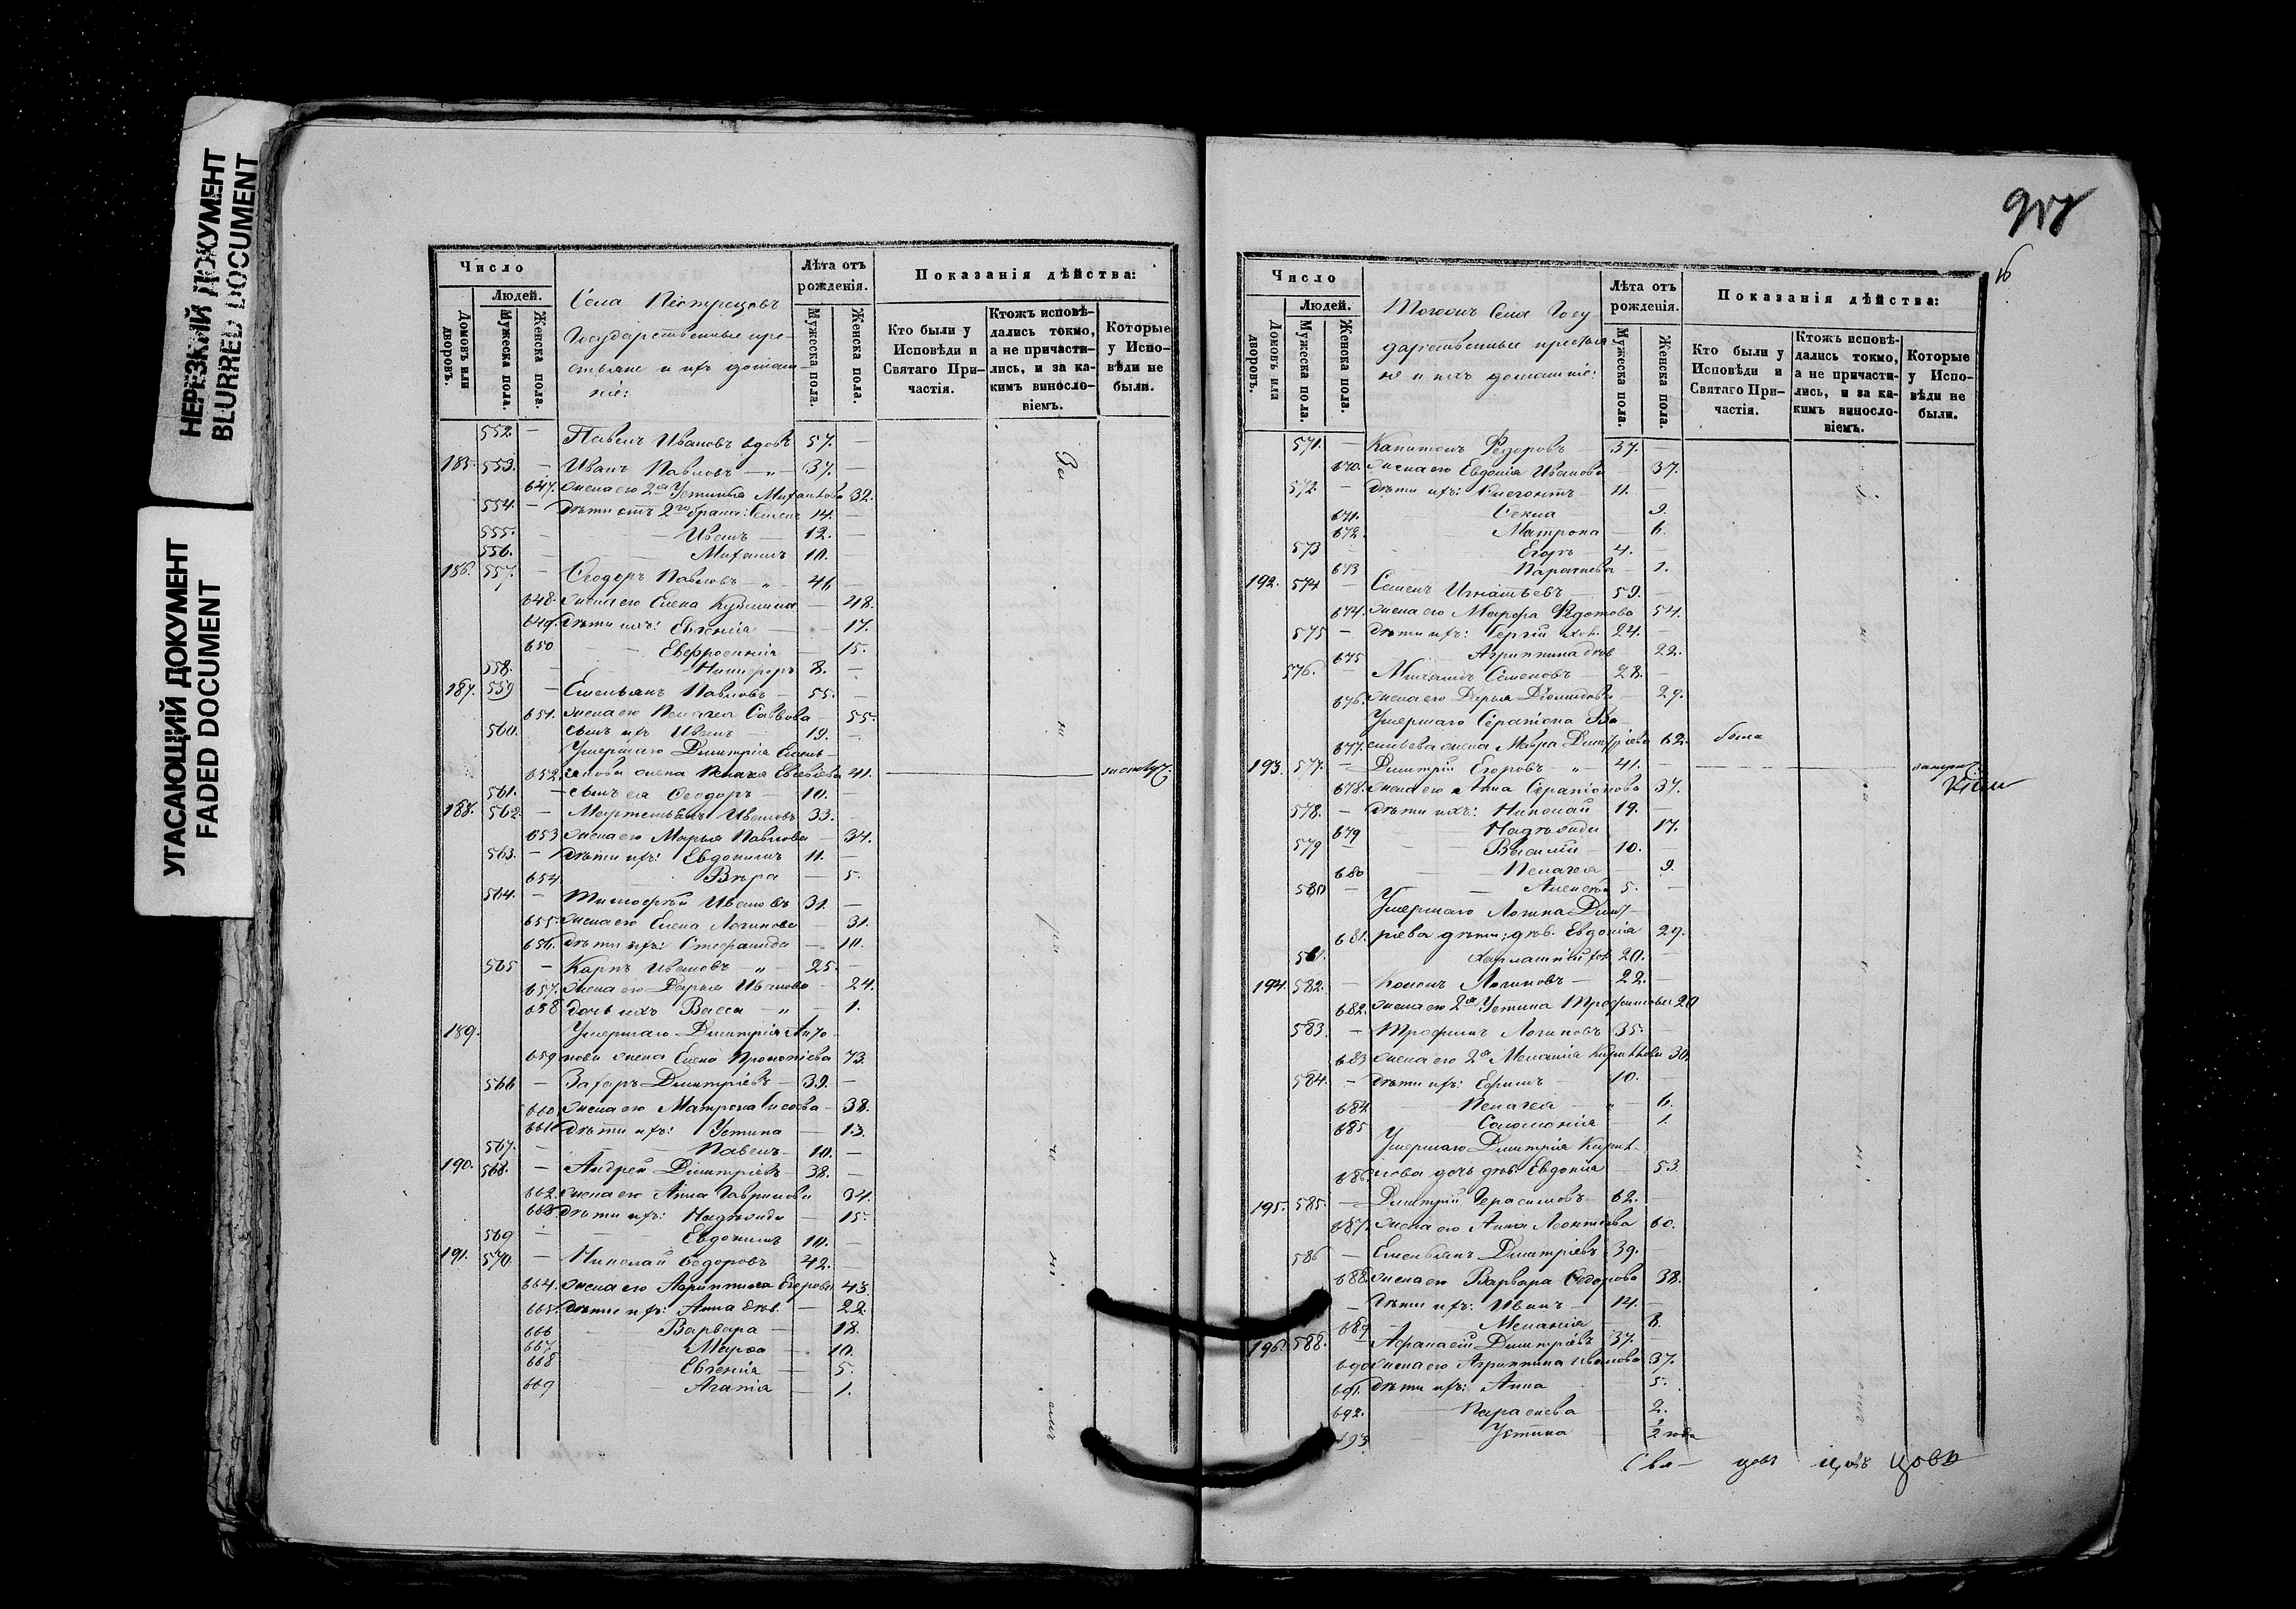 НЕРЕЗКИЙ ДОКУМЕНТ
BLURRED DOCUMENT
УГАСАЮЩИЙ ДОКУМЕНТ
FADED DOCUMENT
Число
Людей.
Домовъ или дворовъ.
Мужеска пола.
Женска пола.
Села
Государственные кре-
стьяне и ихъ домаш-
ніе:
Лѣта отъ рожденія.
Мужеска пола.
Женска пола.
Показанія дѣйства:
Кто были у Исповѣди и Святаго При-частія.
Ктожъ исповѣ-дались токмо, а не причасти-лись, и за ка-кимъ винос­ло-віемъ.
Которые у Испо-вѣди не были.
552. — Павелъ Ивановъ вдовъ 57. —
185. 553. — Иванъ Павловъ — „ — 37. —
647. жена его 2я Устинья Михайлова 32.
554. — дѣти отъ 2го брака: Семенъ 14. —
555. — — Иванъ — 12. —
556. — — Михаилъ 10. —
186. 557. — Ѳеодоръ Павловъ — „ — 46 —
648. жена его Елена Кузмина — 48.
649. дѣти ихъ: Евгенія — 17.
650 — Евфросинія — 15.
558. — — Никифоръ 8. —
187. 559 — Емельянъ Павловъ — 55. —
651. жена его Пелагея Саввова 55.
560. сынъ ихъ Иванъ — 19. —
Умершаго Димитрія Емель-
652. янова жена Пелагея 41.
561. — сынъ ея Ѳеодоръ — 10. —
188. 562. — Мартемьянъ Ивановъ 33. —
653 жена его Марья Павлова — 34.
563. — дѣти ихъ: Евдокимъ 11. —
654 Вѣра — 5.
564. — Тимофей Ивановъ 31. —
655. жена его Елена Логинова — 31.
656. дѣти ихъ: Стефанида — 10.
565 — Карпъ Ивановъ — „ — 25. —
657. жена его Дарья Иванова — 24.
658 дочь ихъ Васса — „ — 1.
189. Умершаго Димитрія Анто-
659 нова жена Елена Прокопіева 73.
566 — Захаръ Димитріевъ — 39. —
660. жена его Матрона — 38.
661. дѣти ихъ: Устина — 13.
567. — — Павелъ — 10. —
190. 568. — Андрей Димитріевъ — 38. —
662. жена его Анна Гаврилова 34.
663. дѣти ихъ: Надежда — 15.
569 — — Евдокимъ 10. —
191. 570. — Николай Ѳедоровъ 42. —
664. жена его Агриппина Егорова 43.
665. дѣти ихъ: Анна дѣв. — 22.
666 — Варвара — 18.
667. — Марѳа — 10.
668 Евгенія — 5.
669 — Агапія — 1.
16
Число
Людей.
Домовъ или дворовъ.
Мужеска пола.
Женска пола.
Тогожъ Села Госу-
дарственные крестья-
не и ихъ домашніе:
Лѣта отъ рожденія.
Мужеска пола.
Женска пола.
Показанія дѣйства:
Кто были у Исповѣди и Святаго При-частія.
Ктожъ исповѣ-дались токмо, а не причасти-лись, и за ка-кимъ винос­ло-віемъ.
Которые у Испо-вѣди не были.
571. — Капитонъ Ѳедоровъ 37. —
670. жена его Евдокія Иванова 37.
572. — дѣти ихъ: 11. —
671. Ѳекла — 9.
672. Матрона — 6.
573 — Егоръ — 4. —
673 — Параскева — 1.
192. 574 — Семенъ Игнатьевъ — 59. —
674. жена его Марфа Ѳедотова 54.
575 — дѣти ихъ: Сергій хол. 24. —
675 Агриппина дѣв 22.
576. — Михаилъ Семеновъ — 28. —
676. жена его Дарья 29.
Умершаго Серапіона Ва-
677. сильева жена Мавра Димитріева 62. была
193. 577. — Димитрій Егоровъ „ — 41. —
678. жена его Анна Серапіонова 37.
578. — дѣти ихъ: Николай 19. —
679 — Надежда 17.
579 — — Василій — 10. —
680 — Пелагея — 9.
580 — — Алексѣй 5. —
Умершаго Логина Димит-
681. ріева дѣти: дѣв. Евдокія 29.
581. Харлампій хол. 20. —
194. 582. — Кононъ Логиновъ — 22. —
682. жена его 2я Устина Трофимова 20
583. — Трофимъ Логиновъ 35. —
683 жена его 2я Меланія Кириллова 30.
584. — дѣти ихъ: Ефимъ — 10. —
684. — Пелагея — „ 6.
685 Соломонія — 1.
Умершаго Димитрія Кирил-
686. лова дочь дѣв. Евдокія — 53.
195. 585. — Димитрій Герасимовъ 62. —
687. жена его Анна Леонтіева 60.
586 — Емельянъ Димитріевъ 39. —
688. жена его Варвара Ѳедорова 38.
— дѣти ихъ: Иванъ — 14. —
689 — Меланія — 8.
196. 588. — Афанасій Димитріевъ 37. —
690 жена его Агриппина Иванова 37.
691. дѣти ихъ: Анна 5.
692. — Параскева — 2.
693. — Устина ½ года
Свя— цовъ цовъ цовъ